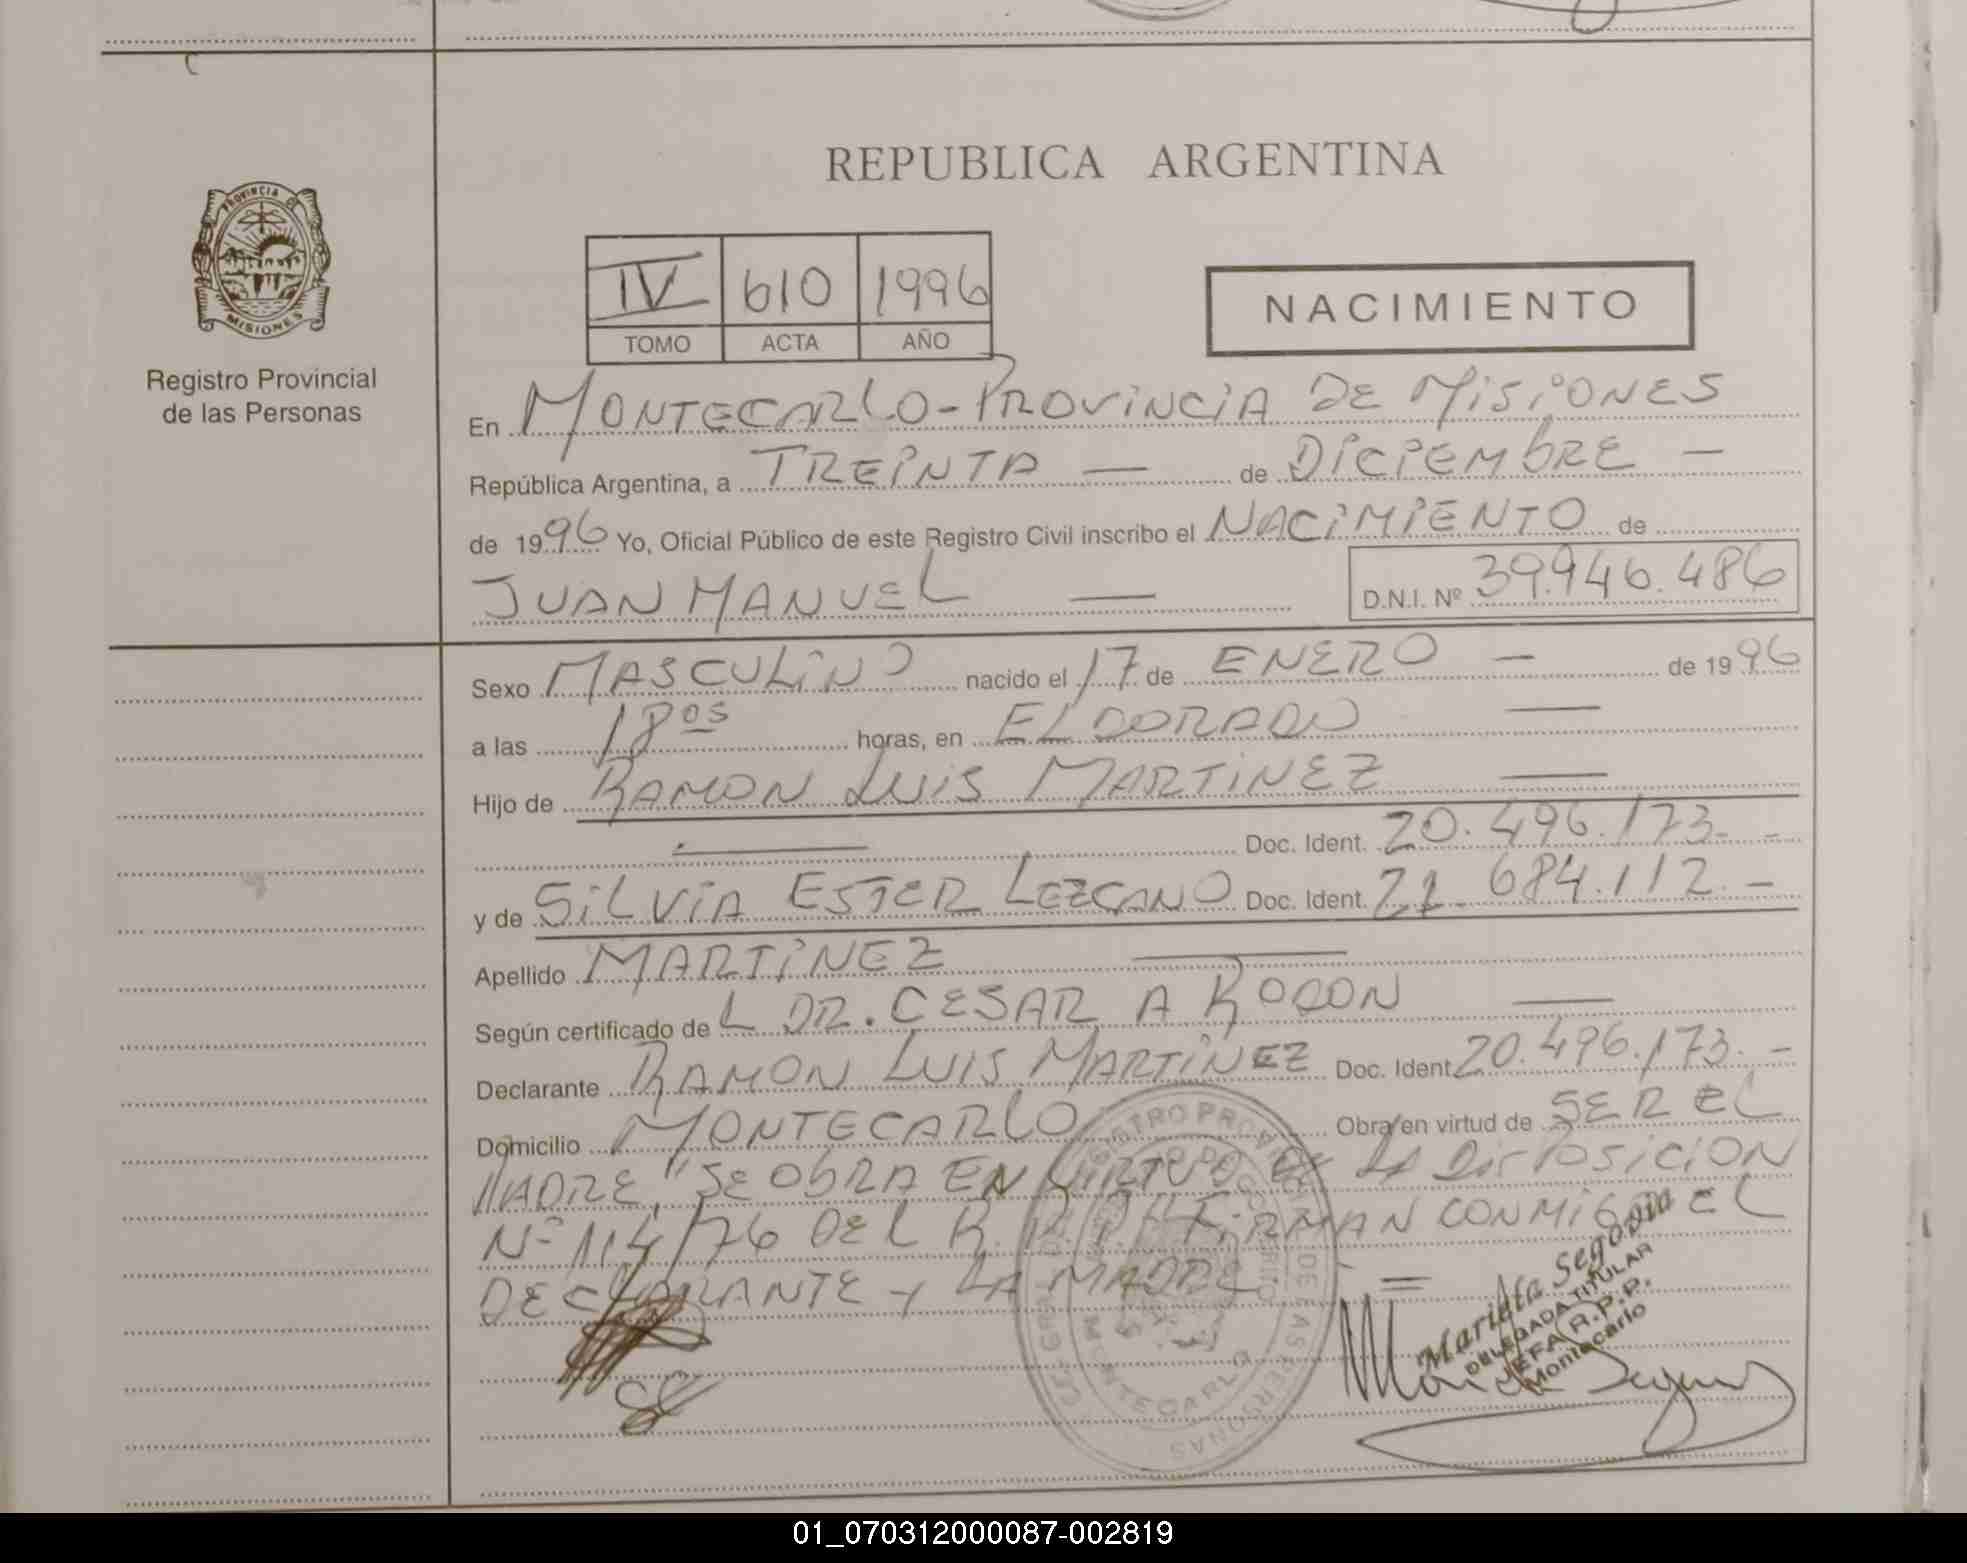 REPUBLICA ARGENTINA
PROVINCIA DE
MISIONES
Registro Provincial
de las Personas
IV 610 1996
TOMO ACTA AÑO
NACIMIENTO
En MONTECARLO - PROVINCIA DE MISIONES
República Argentina, a TREINTA — de DICIEMBRE —
de 1996 Yo, Oficial Público de este Registro Civil inscribo el NACIMIENTO de
JUAN MANUEL — D.N.I. Nº 39.946.486
Sexo MASCULINO nacido el 17 de ENERO — de 1996
a las 18 os horas, en ELDORADO —
Hijo de RAMON LUIS MARTINEZ —
— Doc. Ident. 20.496.173.-
y de SILVIA ESTER LEZCANO Doc. Ident. 21.684.112.-
Apellido MARTINEZ —
Según certificado de L DR. CESAR A —
Declarante RAMON LUIS MARTINEZ Doc. Ident. 20.496.173.-
Domicilio MONTECARLO Obra en virtud de SER EL
PADRE, "SE OBRA EN VIRTUD DE LA DISPOSICION
Nº 114/76 DEL R.P.P." FIRMAN CONMIGO EL
DECLARANTE y LA MADRE =
REGISTRO PROVINCIAL DE LAS PERSONAS
MONTECARLO
Mariela Segovia
DELEGADA TITULAR
JEFA R.P.P.
Montecarlo
01_070312000087-002819